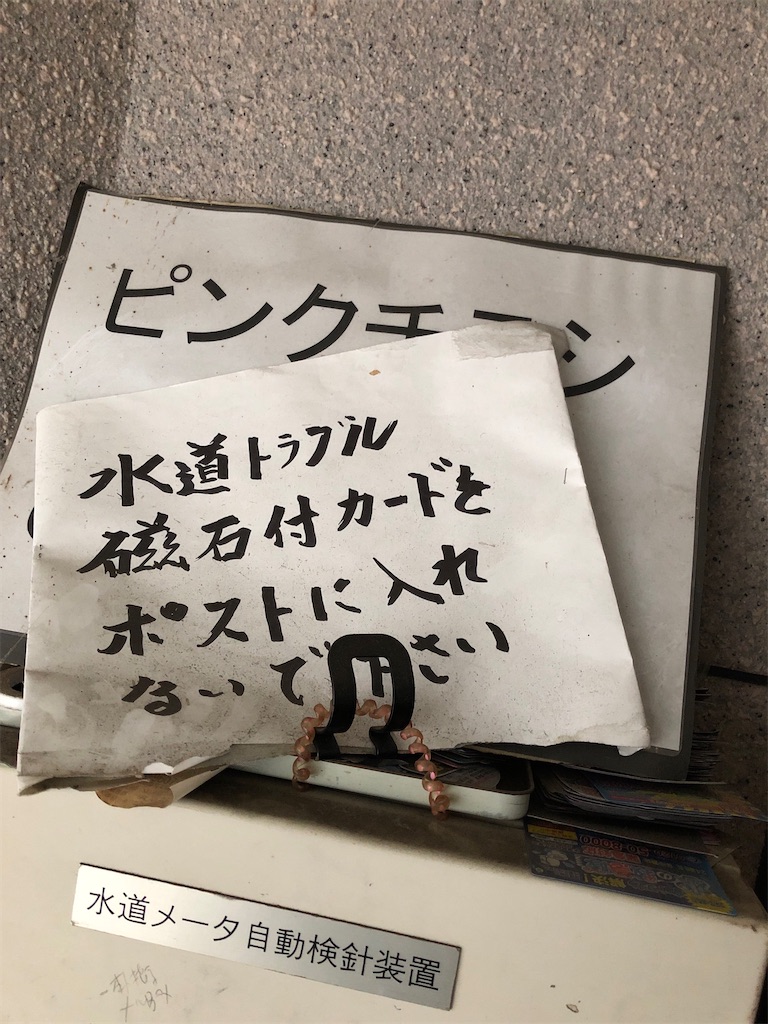 ピンクチラシ
水道トラブル
磁石付カードを
ポストに入れ
ないで下さい
水道メータ自動検針装置